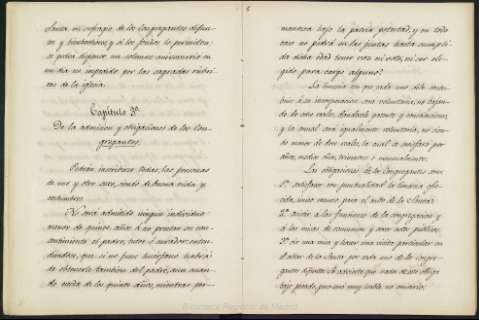 Santa en sufragio de los congregantes difun-
tos y bienhechores, y si los fondos lo permiten
se podra disponer un solemne aniversario en
un dia no impedido por las sagradas rubri-
cas de la iglesia.
Capitulo 3º
De la admision y obligaciones de los Con-
gregantes.
Podrán inscribirse todas las personas
de uno y otro sexo, siendo de buena vida y
costumbres.
No será admitido ningun individuo
menor de quince años sin prestar su con-
sentimiento el padre, tutor ó curador; enten-
diendose, que si no fuese huerfano habrá
de obtenerla tambien del padre, aun cuan-
do esceda de los quince años, mientras per-
6
manezca bajo la patria potestad, y en todo
caso no podrá en las juntas hasta cumpli-
da dicha edad tener voz ni voto, ni ser ele-
gido para cargo alguno.
La limosna con que cada uno debe contri-
buir á la congregacion será voluntaria, no bajan-
do de ocho reales, dandosele patente y constituciones,
y la anual será igualmente voluntaria, no sien-
do menor de doce reales, la cual se satisfará por
años, medios años, trimestres ó mensualmente.
Las obligaciones de los Congregantes son:
1ª satisfacer con puntualidad la limosna ofre-
cida, unico recurso para el culto de la Señora:
2ª asistir á las funciones de la congregacion y
á las misas de comunion y otros actos publicos:
3ª oir una misa y hacer una visita particular en
el altar de la Señora por cada uno de los congre-
gantes difuntos. Se advierte que nada de esto obliga
bajo pecado, pero será muy laudable no omitirlo.
Biblioteca Regional de Madrid